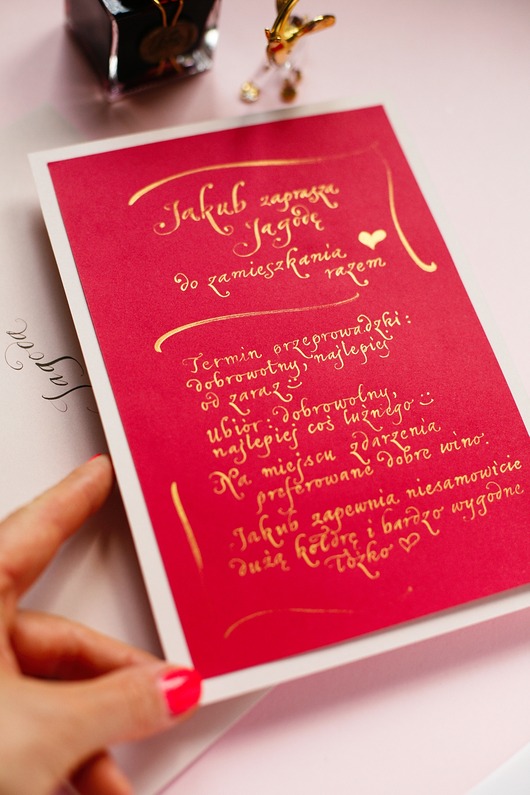 Jakub zaprasza
Jagodę
do zamieszkania
razem
Termin przeprowadzki:
dobrowolny, najlepiej
od zaraz :)
Ubiór: dobrowolny,
najlepiej coś luźnego :)
Na miejscu zdarzenia
preferowane dobre wino.
Jakub zapewnia niesamowicie
dużą kołdrę i bardzo wygodne
łóżko ♡
Jagoda